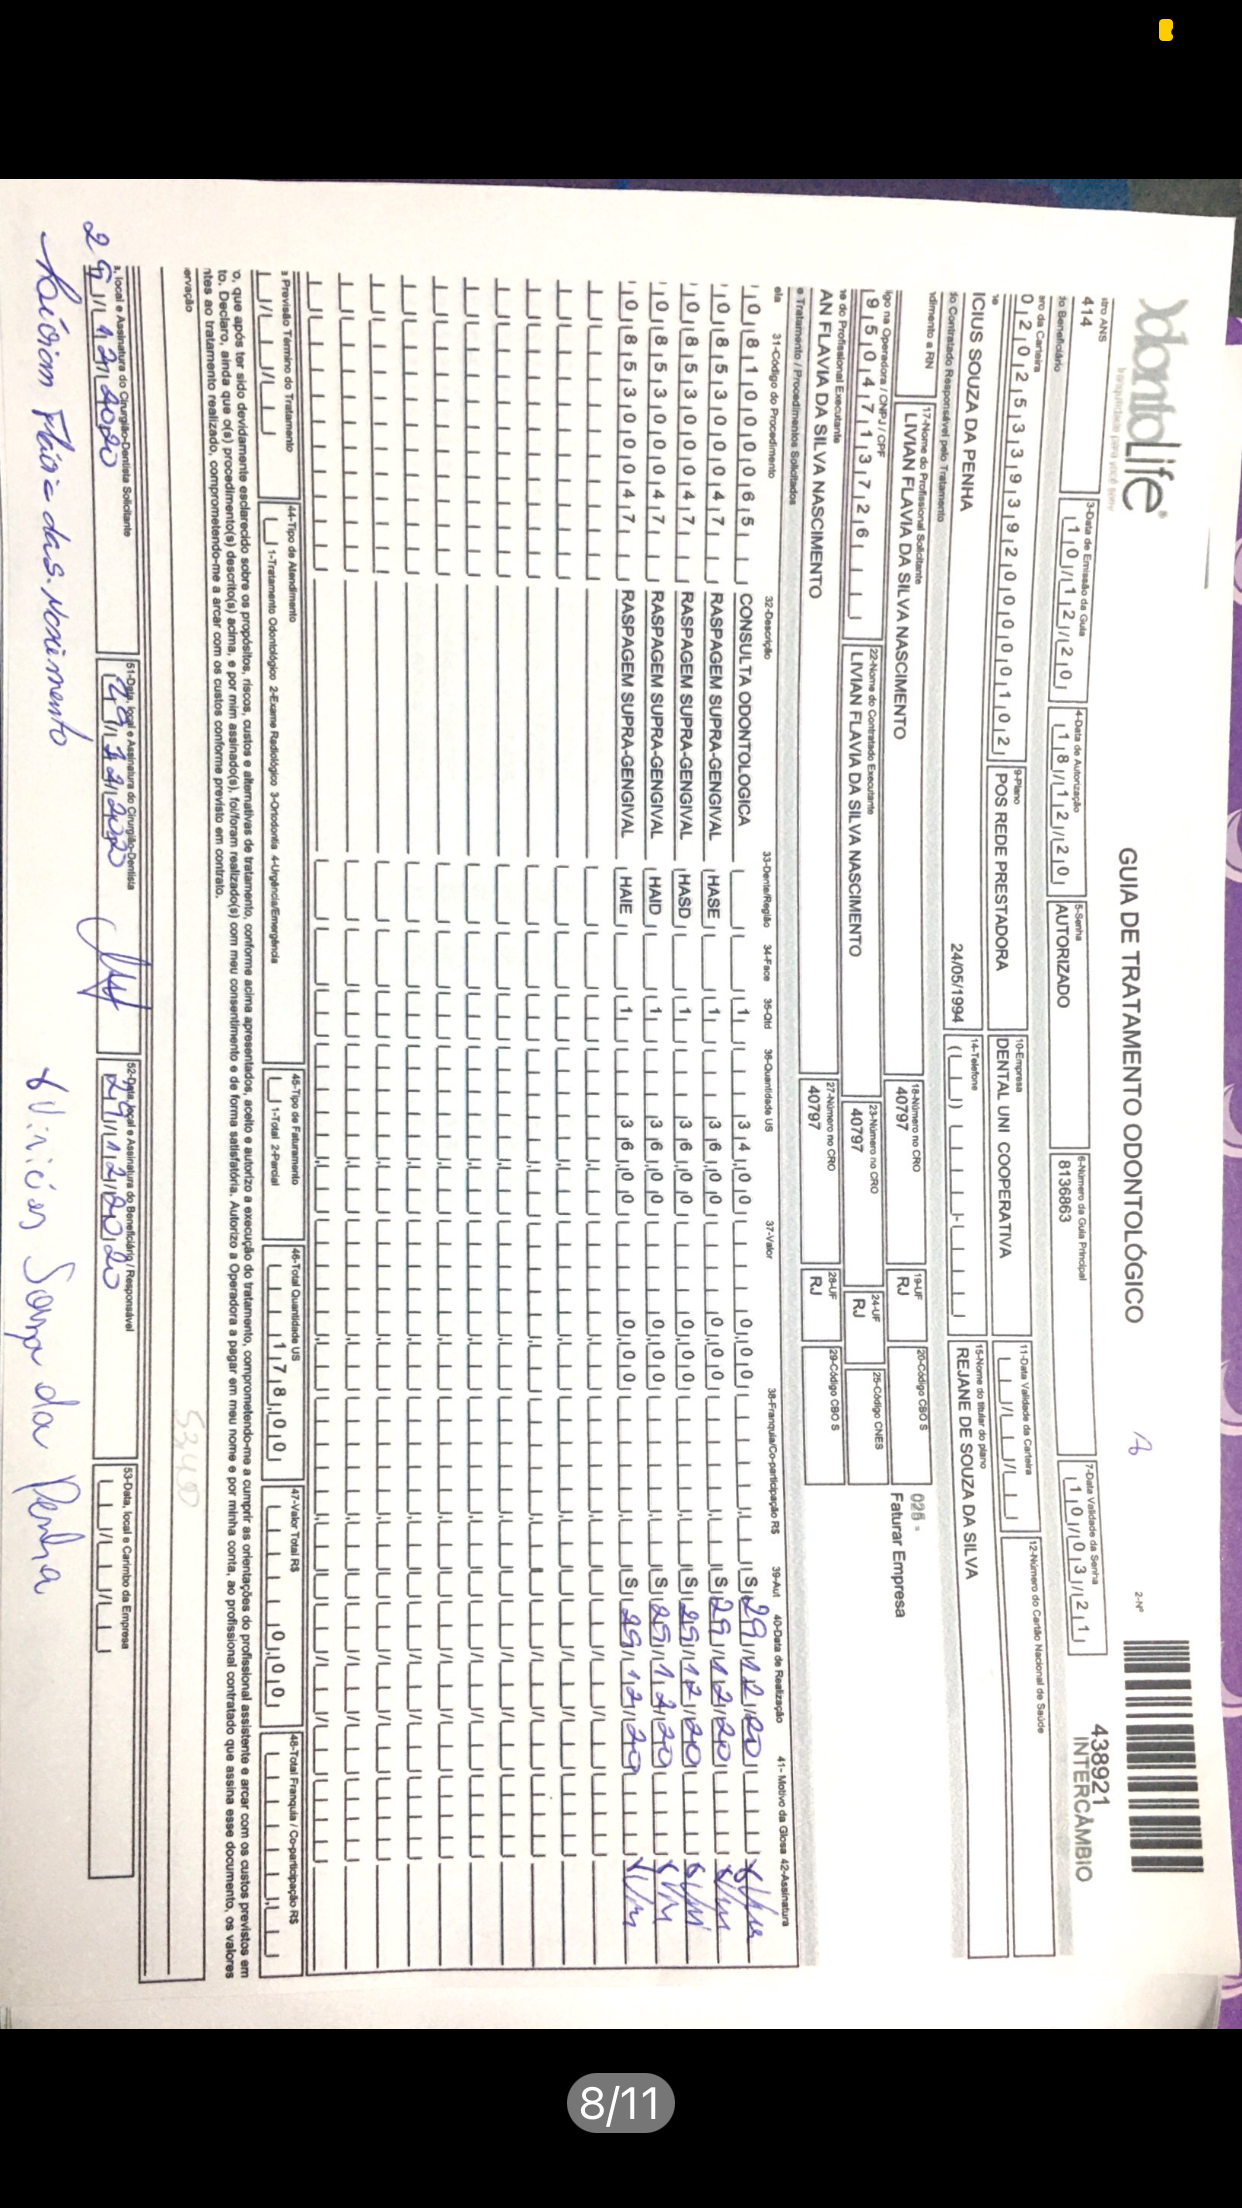 OdontoLife®
tranquilidade para você sorrir
GUIA DE TRATAMENTO ODONTOLÓGICO
2-Nº
438921
INTERCÂMBIO
stro ANS
414
3-Data de Emissão da Guia
10/12/20
4-Data de Autorização
18/12/20
5-Senha
AUTORIZADO
6-Número da Guia Principal
8136863
7-Data Validade da Senha
10/03/21
do Beneficiário
ero da Carteira
02025339392000000102
9-Plano
POS REDE PRESTADORA
10-Empresa
DENTAL UNI COOPERATIVA
11-Data Validade da Carteira
12-Número do Cartão Nacional de Saúde
ICIUS SOUZA DA PENHA
24/05/1994
14-Telefone
15-Nome do titular do plano
REJANE DE SOUZA DA SILVA
do Contratado Responsável pelo Tratamento
ndimento a RN
17-Nome do Profissional Solicitante
LIVIAN FLAVIA DA SILVA NASCIMENTO
18-Número no CRO
40797
19-UF
RJ
20-Código CBO S
Faturar Empresa
igo na Operadora / CNPJ / CPF
95047137 26
22-Nome do Contratado Executante
LIVIAN FLAVIA DA SILVA NASCIMENTO
23-Número no CRO
40797
24-UF
RJ
25-Código CNES
e do Profissional Executante
AN FLAVIA DA SILVA NASCIMENTO
27-Número no CRO
40797
28-UF
RJ
29-Código CBO S
e Tratamento / Procedimentos Solicitados
ela 31-Código do Procedimento 32-Descrição 33-Dente/Região 34-Face 35-Qtd 36-Quantidade US 37-Valor 38-Franquia/Co-participação R$ 39-Aut 40-Data de Realização 41- Motivo da Glosa 42-Assinatura
081000065 CONSULTA ODONTOLOGICA 1 34,00 0,00 S 29/12/20
085300047 RASPAGEM SUPRA-GENGIVAL HASE 1 36,00 0,00 S 29/12/20
085300047 RASPAGEM SUPRA-GENGIVAL HASD 1 36,00 0,00 S 29/12/20
085300047 RASPAGEM SUPRA-GENGIVAL HAID 1 36,00 0,00 S 29/12/20
085300047 RASPAGEM SUPRA-GENGIVAL HAIE 1 36,00 0,00 S 29/12/20
a Previsão Término do Tratamento
44-Tipo de Atendimento
1-Tratamento Odontológico 2-Exame Radiológico 3-Ortodontia 4-Urgência/Emergência
45-Tipo de Faturamento
1-Total 2-Parcial
46-Total Quantidade US
178,00
47-Valor Total R$
0,00
48-Total Franquia / Co-participação R$
o, que após ter sido devidamente esclarecido sobre os propósitos, riscos, custos e alternativas de tratamento, conforme acima apresentados, aceito e autorizo a execução do tratamento, comprometendo-me a cumprir as orientações do profissional assistente e arcar com os custos previstos em
to. Declaro, ainda que o(s) procedimento(s) descrito(s) acima, e por mim assinado(s), foi/foram realizado(s) com meu consentimento e de forma satisfatória. Autorizo a Operadora a pagar em meu nome e por minha conta, ao profissional contratado que assina esse documento, os valores
ntes ao tratamento realizado, comprometendo-me a arcar com os custos conforme previsto em contrato.
ervação
53,40
a, local e Assinatura do Cirurgião-Dentista Solicitante
29/12/2020
51-Data, local e Assinatura do Cirurgião-Dentista
29/12/2020
52-Data, local e Assinatura do Beneficiário / Responsável
29/12/2020
53-Data, local e Carimbo da Empresa
Flávia da S. Nascimento
Vinicius Souza da Penha
8/11